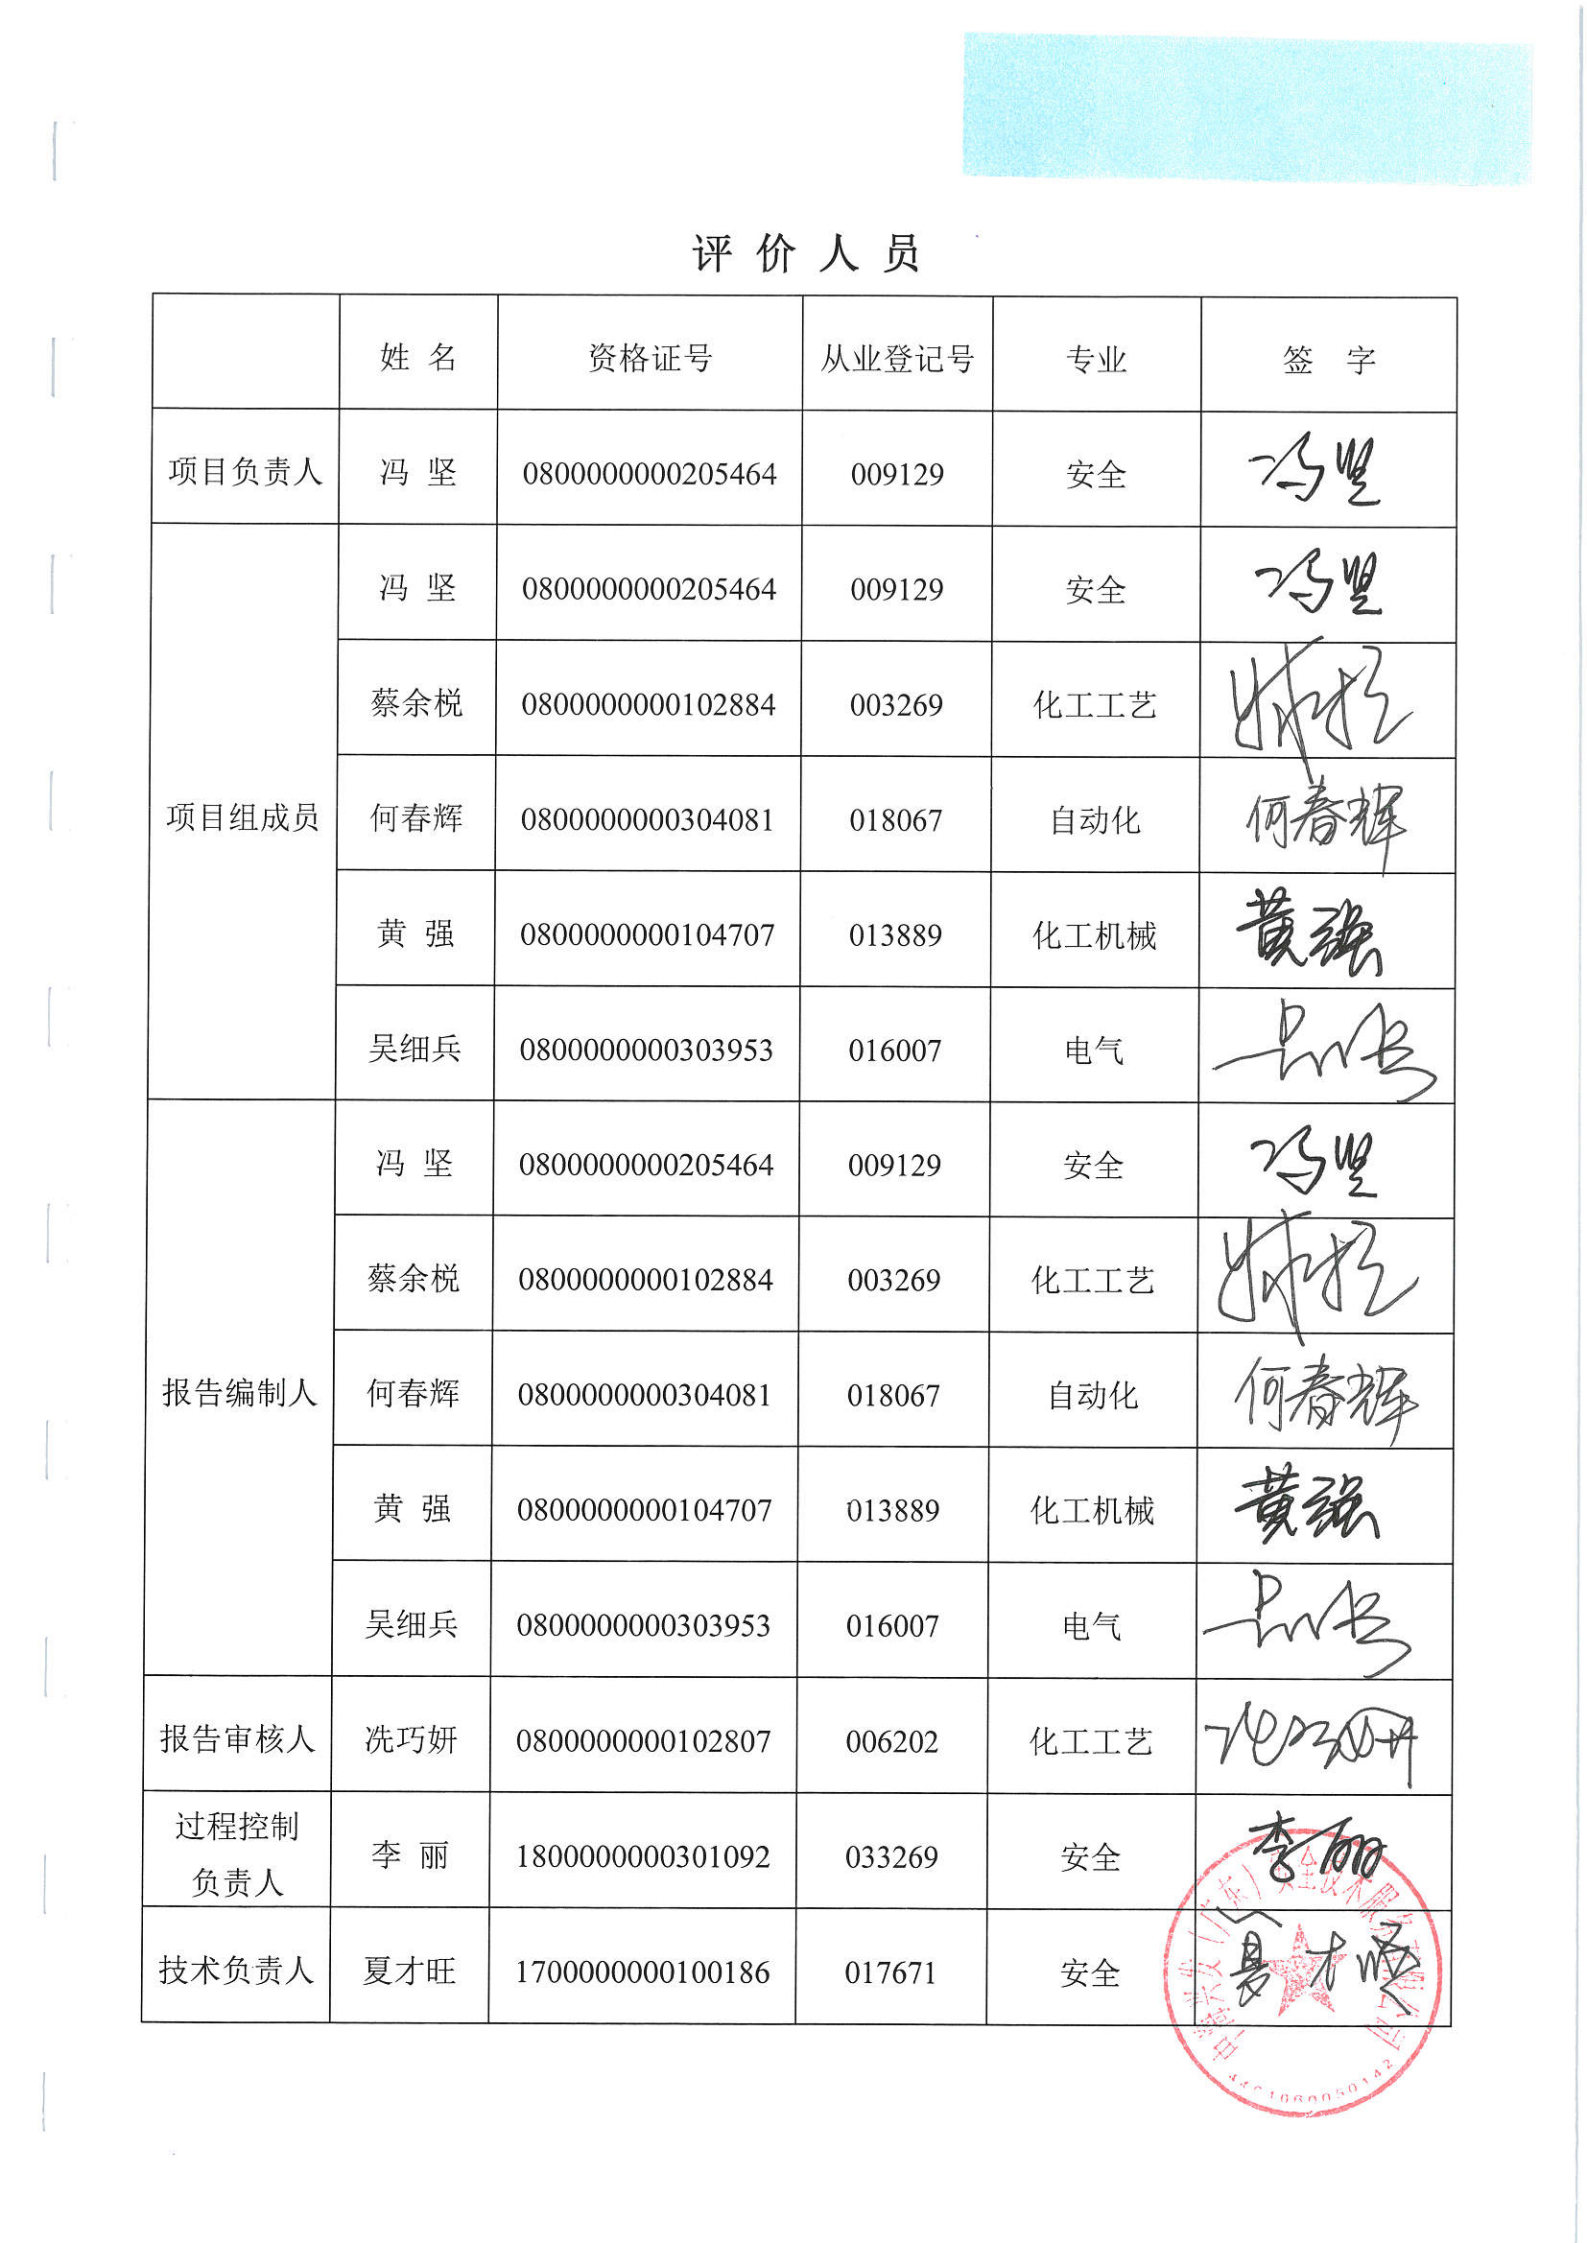 评价人员
姓 名 资格证号 从业登记号 专业 签 字
项目负责人 冯 坚 0800000000205464 009129 安全 冯坚
项目组成员 冯 坚 0800000000205464 009129 安全 冯坚
蔡余棁 0800000000102884 003269 化工工艺
何春辉 0800000000304081 018067 自动化 何春辉
黄 强 0800000000104707 013889 化工机械 黄强
吴细兵 0800000000303953 016007 电气 吴细兵
报告编制人 冯 坚 0800000000205464 009129 安全 冯坚
蔡余棁 0800000000102884 003269 化工工艺
何春辉 0800000000304081 018067 自动化 何春辉
黄 强 0800000000104707 013889 化工机械 黄强
吴细兵 0800000000303953 016007 电气 吴细兵
报告审核人 冼巧妍 0800000000102807 006202 化工工艺 冼巧妍
过程控制
负责人 李 丽 1800000000301092 033269 安全 李丽
技术负责人 夏才旺 1700000000100186 017671 安全 夏才旺